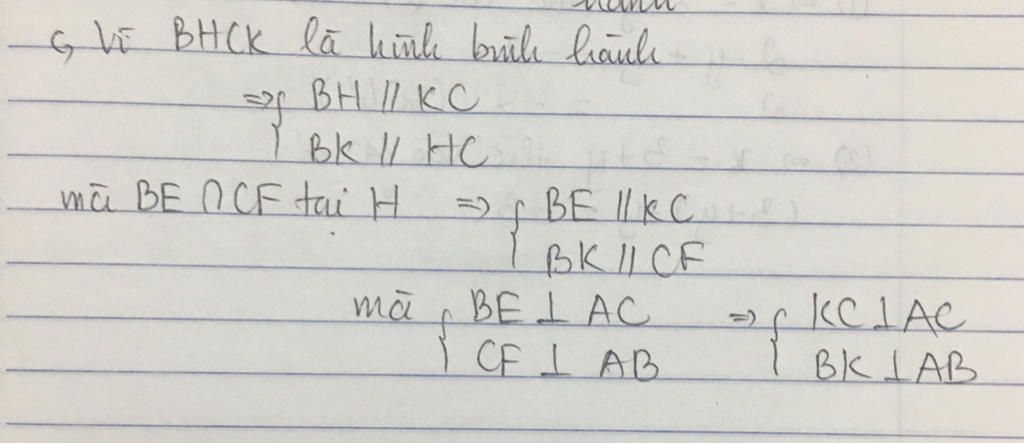 hành
c, Vì BHCK là hình bình hành
=> { BH // KC
BK // HC
mà BE ∩ CF tại H => { BE // KC
BK // CF
mà { BE ⊥ AC => { KC ⊥ AC
CF ⊥ AB BK ⊥ AB